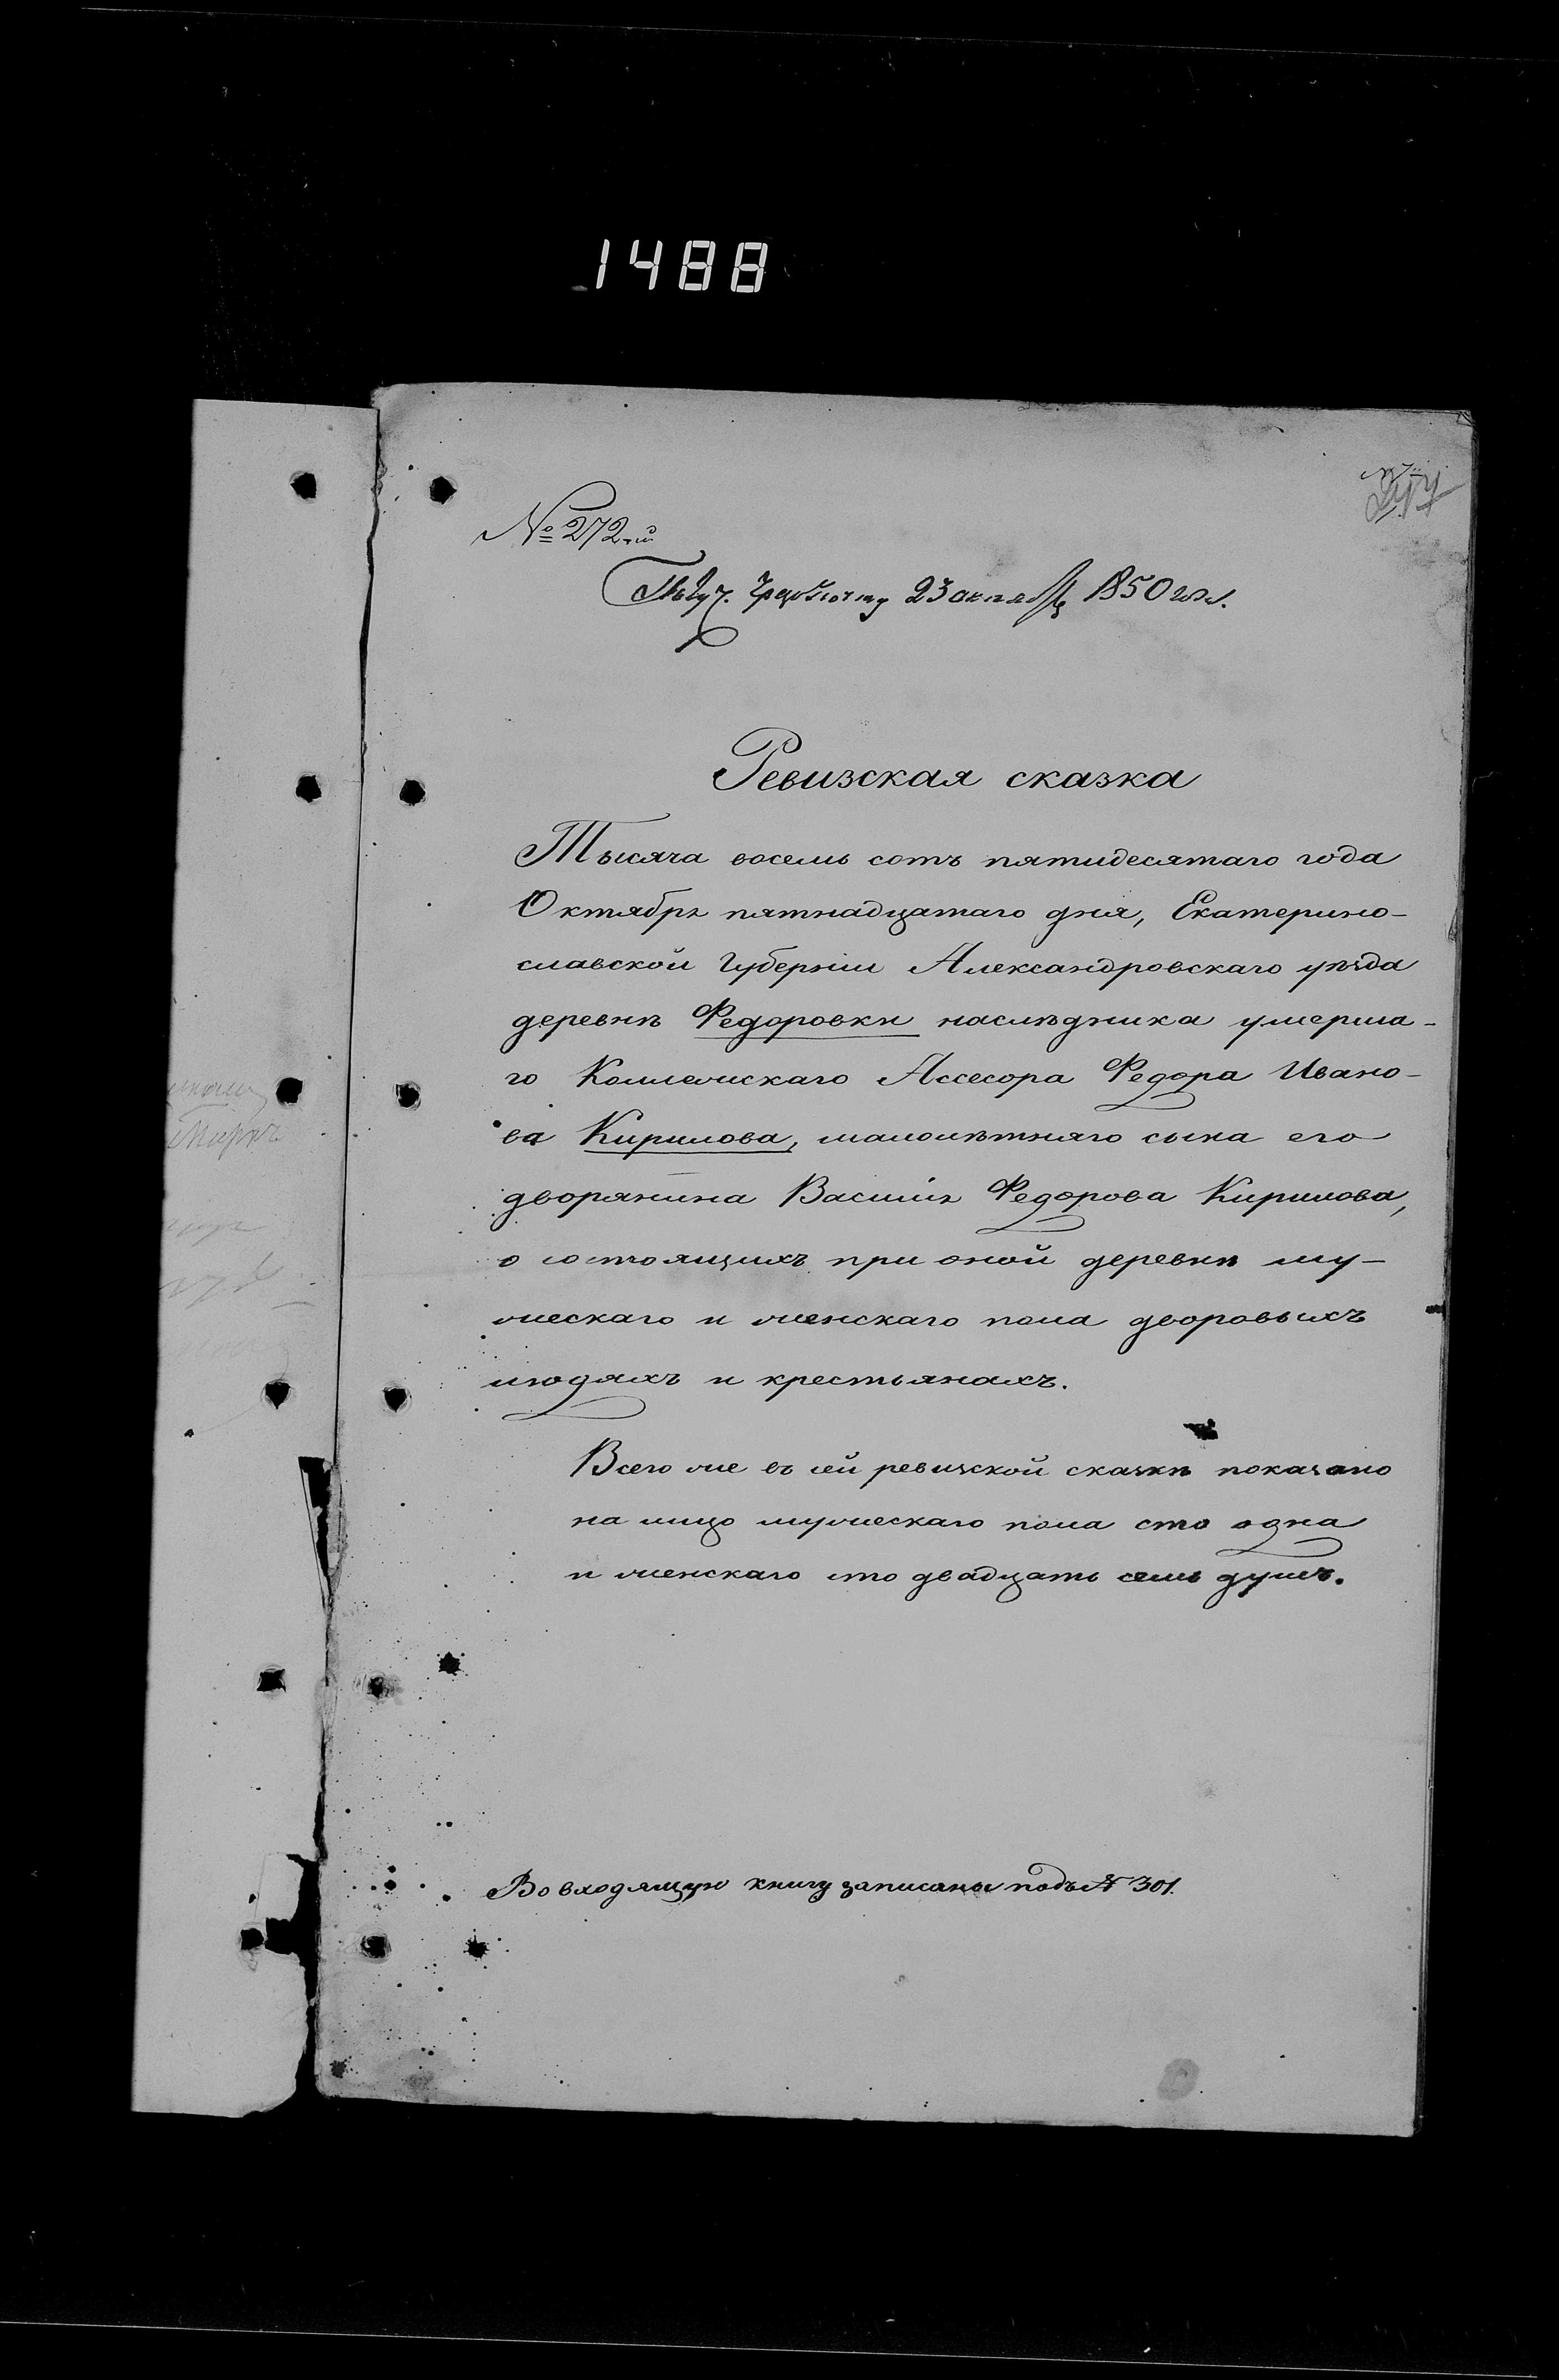 1488
№ 272й
Получ. чрез почту 23 октября 1850 года.
Ревизская сказка
Тысяча восемь сотъ пятидесятаго года
Октября пятнадцатаго дня, Екатерино-
славской Губерніи Александровскаго уѣзда
деревнѣ Федоровки наслѣдника умерша-
го Коллежскаго Ассесора Федора Ивано-
ва Кирилова, малолѣтняго сына его
дворянина Василія Федорова Кирилова,
о состоящихъ при оной деревнѣ му-
жескаго и женскаго пола дворовыхъ
людяхъ и крестьянахъ.
Всего же въ сей ревизской сказкѣ показано
на лицо мужескаго пола сто одна
и женскаго сто двадцать семь душъ.
Во входящую книгу записаны подъ № 301.